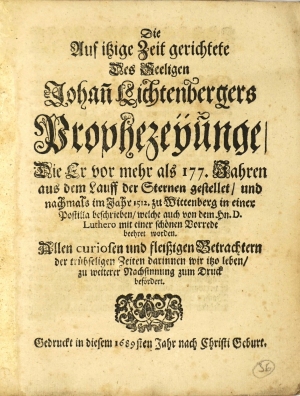 Die
Auf itzige Zeit gerichtete
Des Seeligen
Johañ Lichtenbergers
Prophezeÿunge/
Die Er vor mehr als 177. Jahren
aus dem Lauff der Sternen gestellet/ und
nachmals im Jahr 1512. zu Wittenberg in einer
Postilla beschrieben/ welche auch von dem Hn. D.
Luthero mit einer schönen Vorrede
beehret worden.
Allen curiosen und fleißigen Betrachtern
der trübseligen Zeiten darinnen wir itzo leben/
zu weiterer Nachsinnung zum Druck
befordert.
Gedruckt in diesem 1689sten Jahr nach Christi Geburt.
56